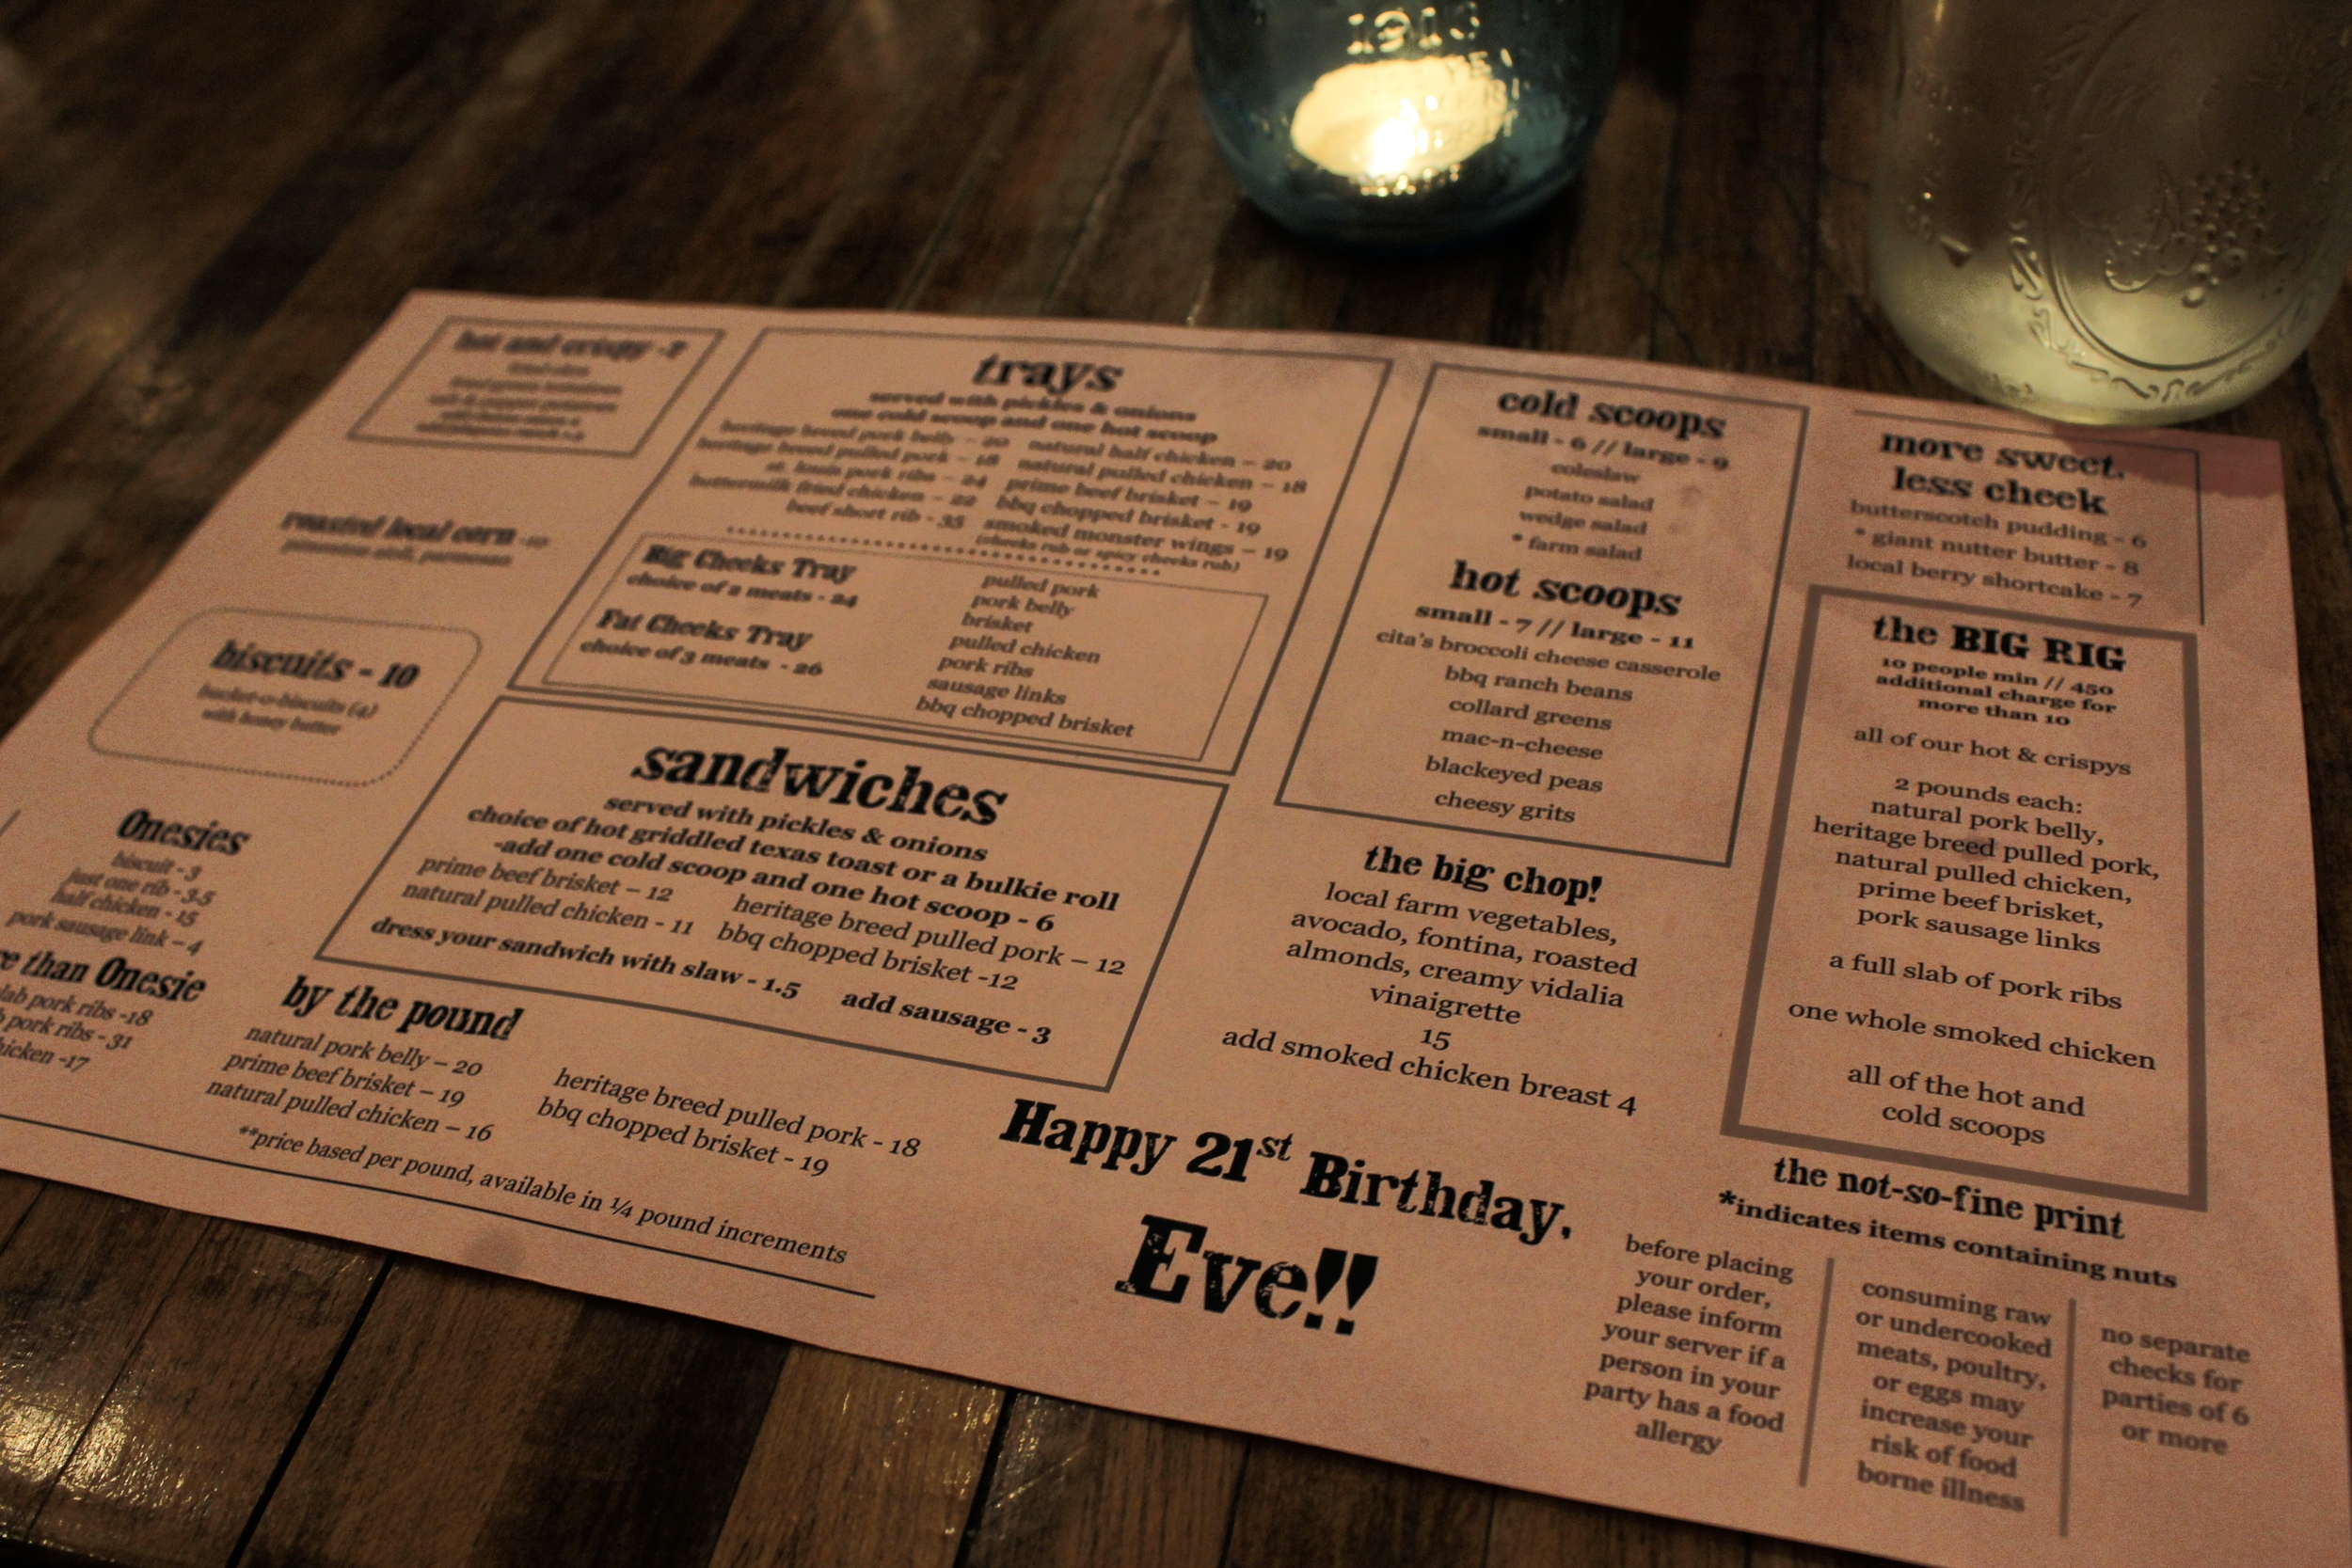 1913
hot and crispy - 7
roasted local corn - 10
biscuits - 10
bucket-o-biscuits (4)
with honey butter
Onesies
biscuit - 3
just one rib - 3.5
half chicken - 15
pork sausage link – 4
than Onesie
pork ribs -18
pork ribs - 31
-17
trays
served with pickles & onions
one cold scoop and one hot scoop
heritage breed pork belly – 20
heritage breed pulled pork – 18
st. louis pork ribs – 24
buttermilk fried chicken – 22
beef short rib - 35
natural half chicken – 20
natural pulled chicken – 18
prime beef brisket – 19
bbq chopped brisket - 19
smoked monster wings – 19
(cheeks rub or spicy cheeks rub)
Big Cheeks Tray
choice of 2 meats - 24
Fat Cheeks Tray
choice of 3 meats - 26
pulled pork
pork belly
brisket
pulled chicken
pork ribs
sausage links
bbq chopped brisket
sandwiches
served with pickles & onions
choice of hot griddled texas toast or a bulkie roll
-add one cold scoop and one hot scoop - 6
prime beef brisket – 12
natural pulled chicken - 11
heritage breed pulled pork – 12
bbq chopped brisket -12
dress your sandwich with slaw - 1.5
add sausage - 3
by the pound
natural pork belly – 20
prime beef brisket – 19
natural pulled chicken – 16
heritage breed pulled pork - 18
bbq chopped brisket - 19
**price based per pound, available in ¼ pound increments
cold scoops
small - 6 // large - 9
coleslaw
potato salad
wedge salad
* farm salad
hot scoops
small - 7 // large - 11
cita's broccoli cheese casserole
bbq ranch beans
collard greens
mac-n-cheese
blackeyed peas
cheesy grits
the big chop!
local farm vegetables,
avocado, fontina, roasted
almonds, creamy vidalia
vinaigrette
15
add smoked chicken breast 4
Happy 21st Birthday,
Eve!!
more sweet.
less cheek
butterscotch pudding - 6
* giant nutter butter - 8
local berry shortcake - 7
the BIG RIG
10 people min // 450
additional charge for
more than 10
all of our hot & crispys
2 pounds each:
natural pork belly,
heritage breed pulled pork,
natural pulled chicken,
prime beef brisket,
pork sausage links
a full slab of pork ribs
one whole smoked chicken
all of the hot and
cold scoops
the not-so-fine print
*indicates items containing nuts
before placing
your order,
please inform
your server if a
person in your
party has a food
allergy
consuming raw
or undercooked
meats, poultry,
or eggs may
increase your
risk of food
borne illness
no separate
checks for
parties of 6
or more